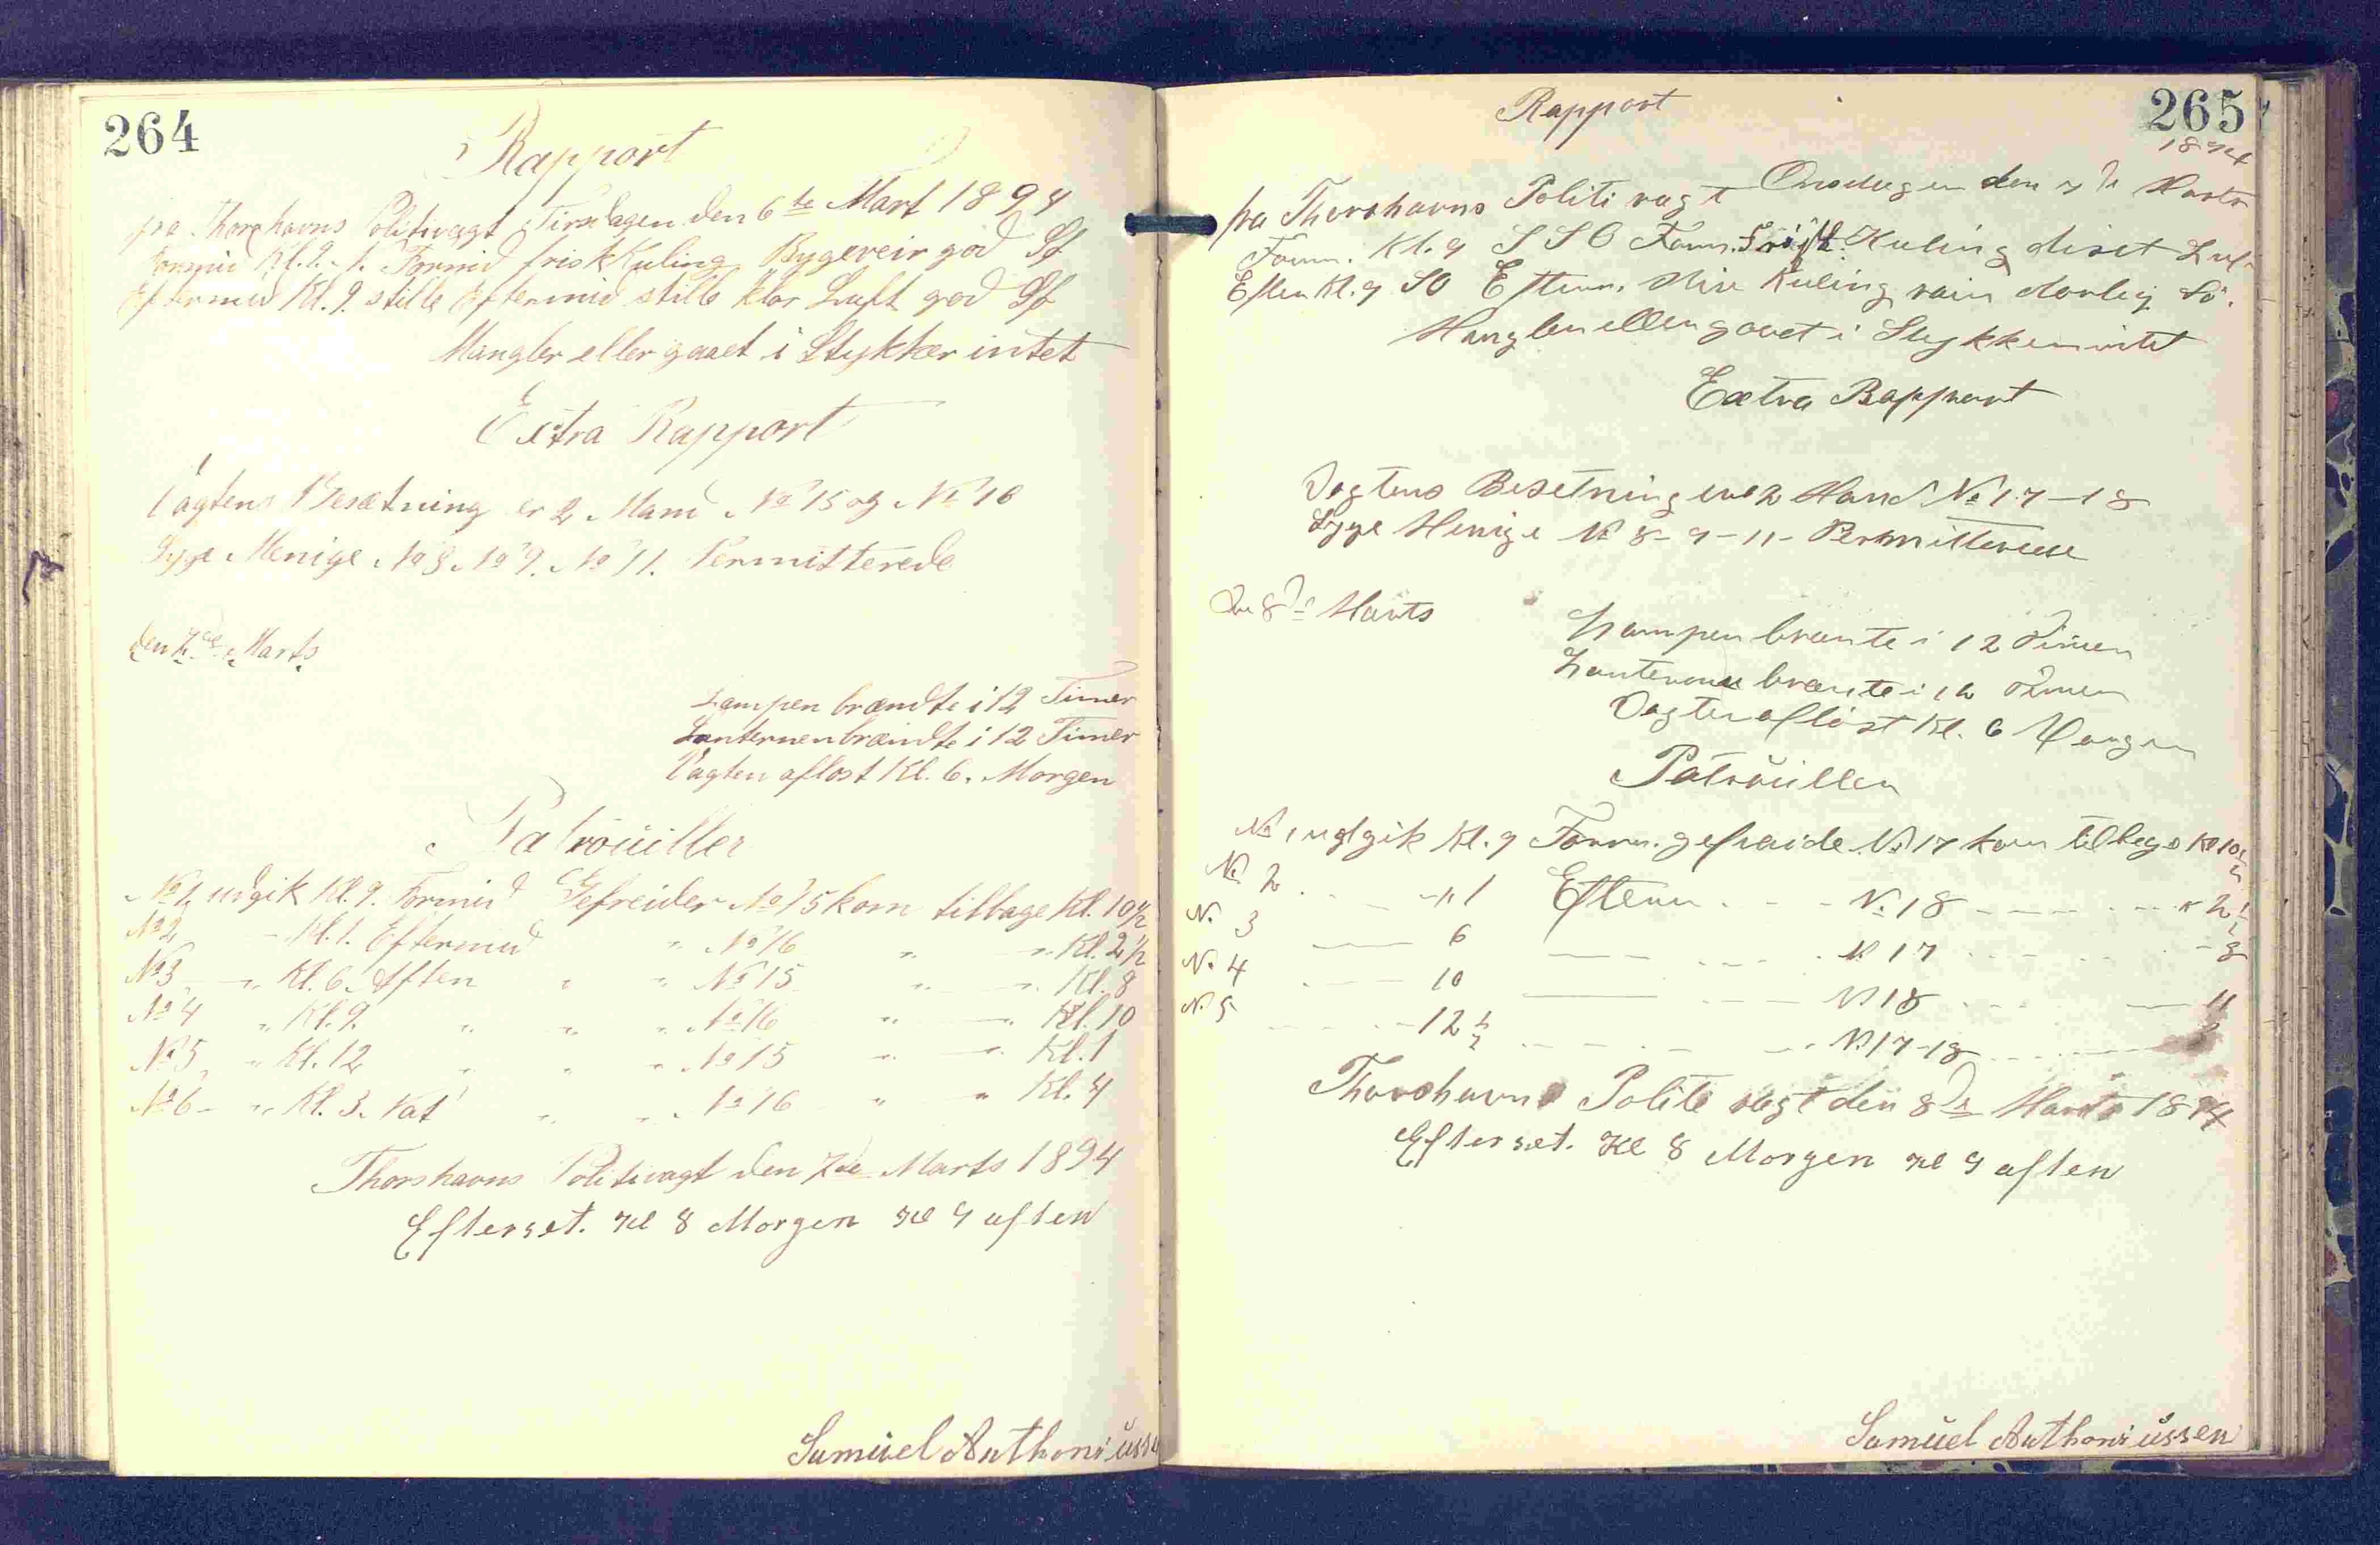 264
Rapport
fra Thorshavns Politivagt Tirsdagen den 6te Mart 1894
Formid Kl. 9. Formid frisk Kuling Bygeveir god Sø
Eftermid Kl. 9. stille Eftermid stille klar Luft god Sø
Mangler eller gaaet i Stykker intet
Extra Rapport
Vagtens Besætning er 2 Mand No 15 og No 16
Syge Menige No 8 No 9. No 11. Permitterede
den 7de Marts
Lampen brændte i 12 Timer
Lanternen brændte i 12 Timer
Vagten afløst Kl. 6. Morgen
Patrouiller
No 1. udgik Kl. 9. Formid Gefreider No 15 kom tilbage Kl. 10 1/2
No 2 - Kl. 1. Eftermid " No 16 " " Kl. 2 1/2
No 3 - " Kl. 6. Aften " " No 15 " " Kl. 8
No 4 " Kl. 9. " " " No 16 " " Kl. 10
No 5 " Kl. 12 " " " No 15 " " Kl. 1
No 6 - " Kl. 3. Nat " " No 16 " " Kl. 4
Thorshavns Politivagt den 7de Marts 1894
Efterset. Kl 8 Morgen Kl 9 aften
Samuel Anthoniusse
265
Rapport
1894
fra Thorshavns Politi vagt Onsdagen den 7de Marts
Form. Kl. 9 SSO Form. Frisk Kuling diset Luft
Efter Kl. 9 SO Efterm. Stiv Kuling rain dorlig Sö.
Mangler eller gaaet i Stykker intet
Extra Rapport
Vagtens Besetning er 2 Mand No 17-18
Syge Menige No 8-9-11- Permitterede
Den 8de Marts
Lampen brænte i 12 Timer
Lanternen brænte i 12 Timer
Vagten aflöst Kl. 6 Morgen
Patrouillen
No 1 utgik Kl. 9 Form. gefraide No 17 kom tilbage Kl 10 1/2
No 2 - " 1 Efterm. - - No 18 - - - " 2 1/2
No 3 - 6 - - - No 17 - - - 8
No 4 - 10 - - - No 18 - - - 11
No 5 - 12 1/2 - - - No 17-18 - - -
Thorshavns Politi vagt den 8de Marts 1894
Efterset. Kl 8 Morgen Kl 9 aften
Samuel Anthoniussen